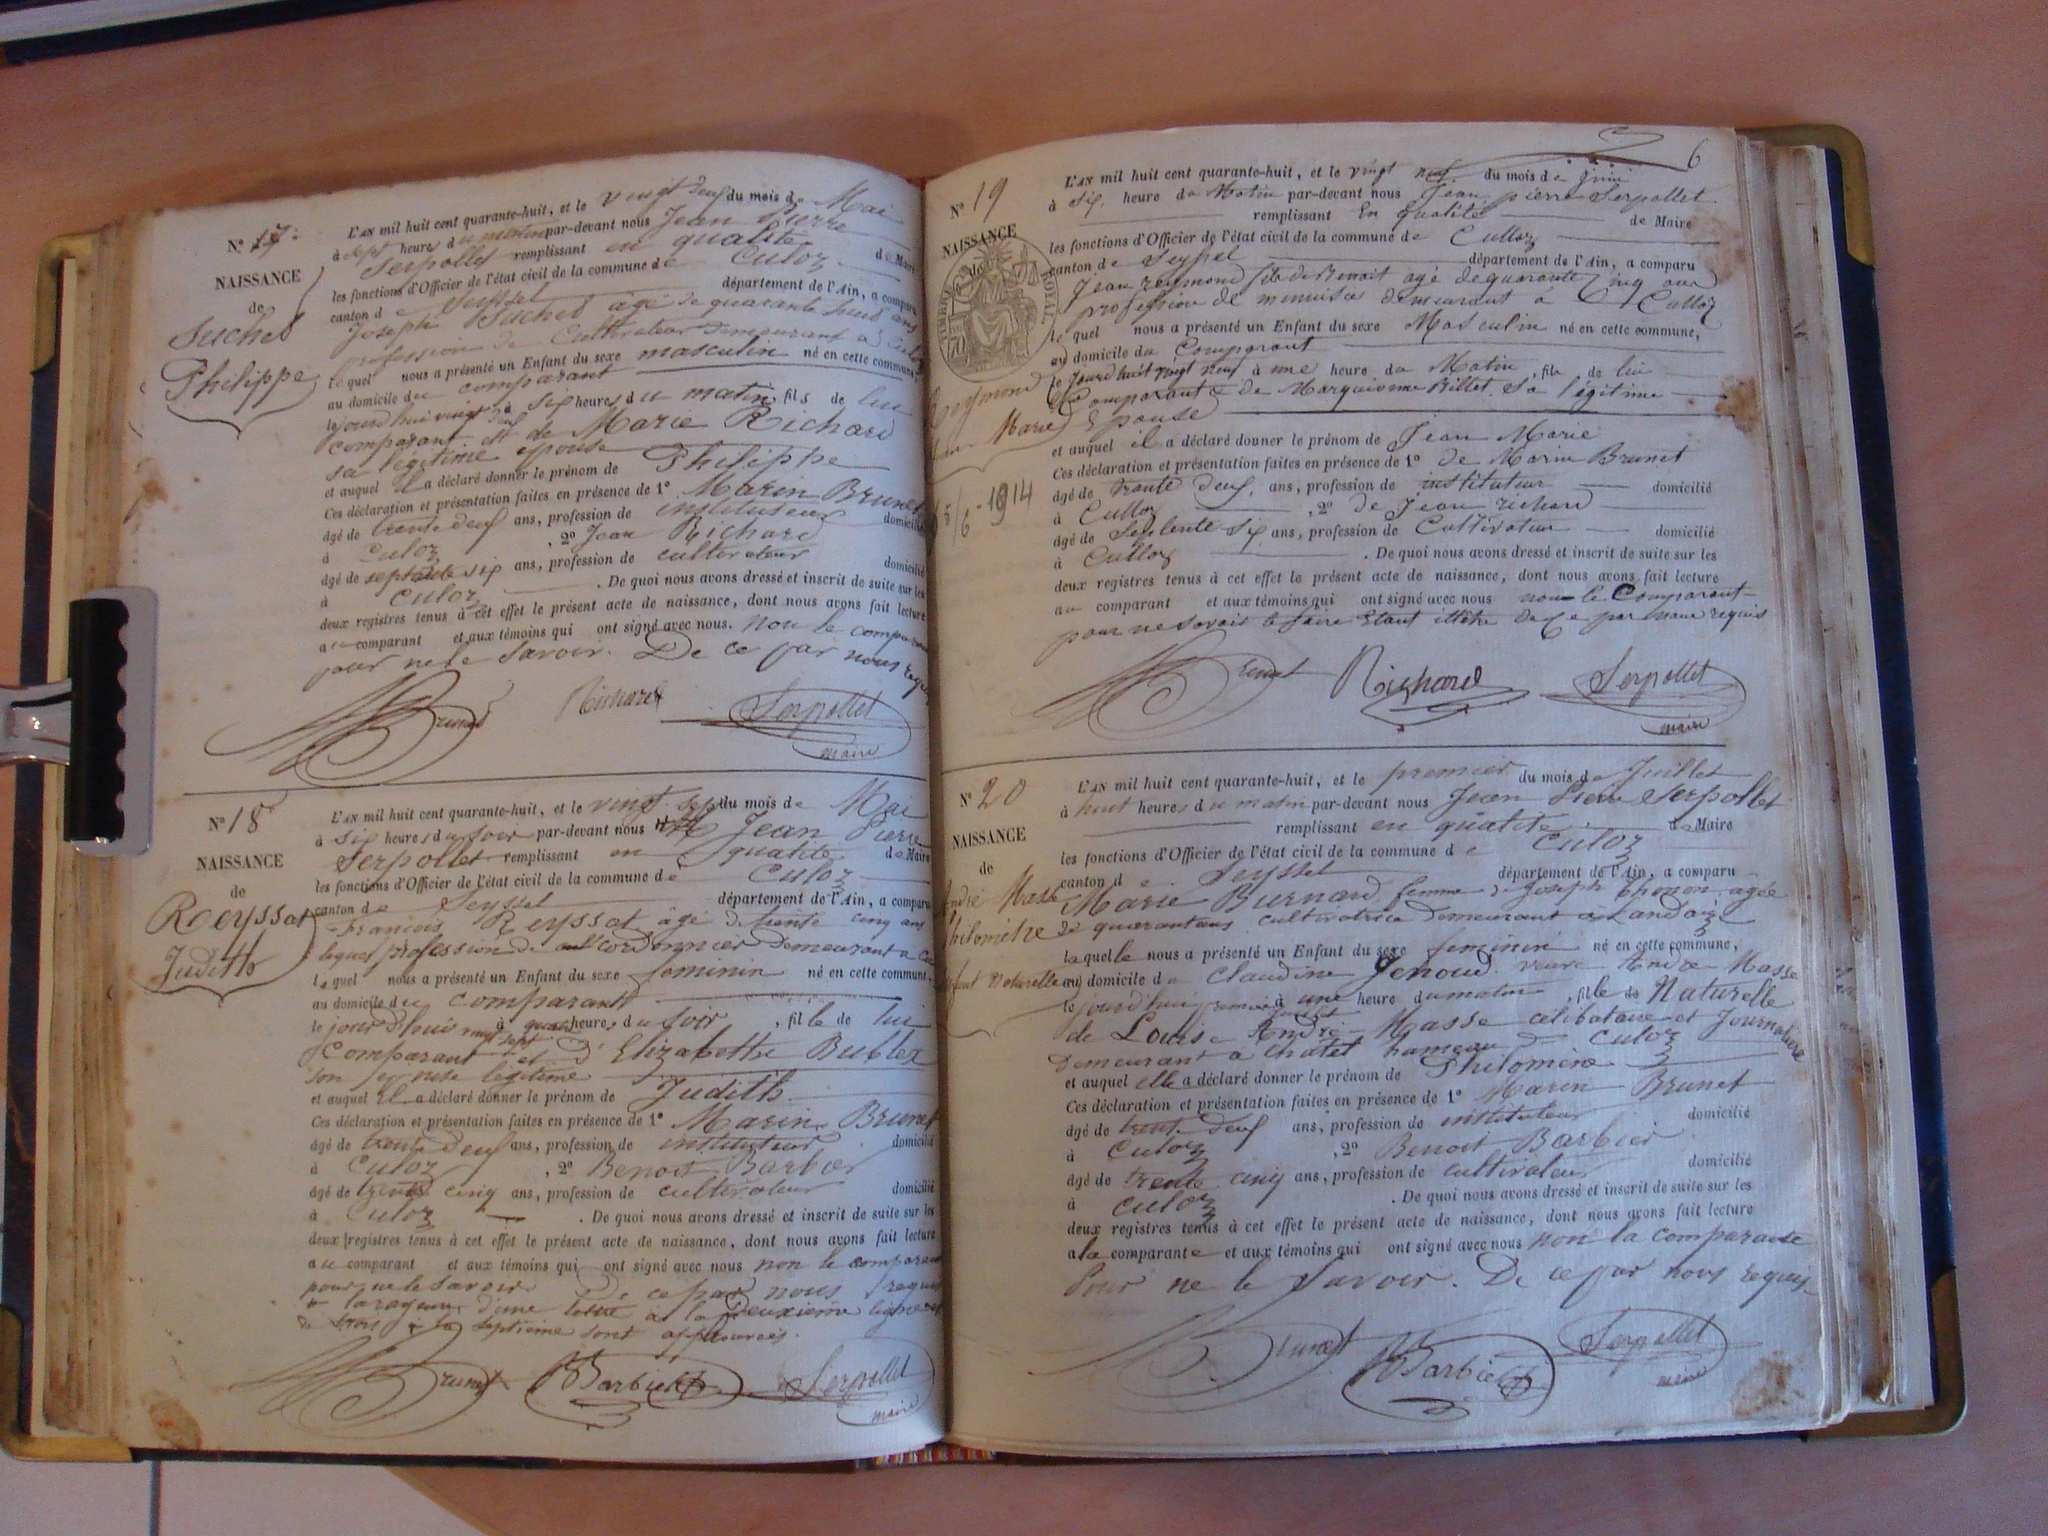 N° 17.
NAISSANCE
de
Suchet
Philippe
L'AN mil huit cent quarante-huit, et le vingt deux du mois de Mai
à sept heures du matin par-devant nous Jean Pierre
Serpollet remplissant en qualité de Maire
les fonctions d'Officier de l'état civil de la commune de Culoz
canton de Seyssel département de l'Ain, a comparu
Joseph Suchet âgé de quarante huit ans
profession de Cultivateur demeurant à Culoz
lequel nous a présenté un Enfant du sexe masculin né en cette commune,
au domicile du comparant
le jourd'hui vingt deux à six heures du matin, fils de lui
comparant et de Marie Richard
sa légitime épouse
et auquel il a déclaré donner le prénom de Philippe
Ces déclaration et présentation faites en présence de 1° Marin Brunet
âgé de trente deux ans, profession de instituteur domicilié
à Culoz, 2° Jean Richard
âgé de septante six ans, profession de cultivateur domicilié
à Culoz. De quoi nous avons dressé et inscrit de suite sur les
deux registres tenus à cet effet le présent acte de naissance, dont nous avons fait lecture
au comparant et aux témoins qui ont signé avec nous. non le comparant
pour ne le Savoir. De ce par nous requis
Brunet Richard Serpollet
maire
N° 18
NAISSANCE
de
Reyssat
Judith
L'AN mil huit cent quarante-huit, et le vingt sept du mois de Mai
à six heures du soir par-devant nous Jean Pierre
Serpollet remplissant en qualité de Maire
les fonctions d'Officier de l'état civil de la commune de Culoz
canton de Seyssel département de l'Ain, a comparu
François Reyssat âgé de trente cinq ans
profession de cordonnier demeurant a
lequel nous a présenté un Enfant du sexe feminin né en cette commune,
au domicile du comparant
le jourd'hui vingt sept à quatre heures du soir, fille de lui
comparant et d'Elizabeth Bublex
son epouse légitime
et auquel il a déclaré donner le prénom de Judith
Ces déclaration et présentation faites en présence de 1° Marin Brunet
âgé de trente deux ans, profession de instituteur domicilié
à Culoz, 2° Benoit Barbier
âgé de trente cinq ans, profession de cultivateur domicilié
à Culoz. De quoi nous avons dressé et inscrit de suite sur les
deux registres tenus à cet effet le présent acte de naissance, dont nous avons fait lecture
au comparant et aux témoins qui ont signé avec nous non le comparant
pour ne le savoir. De ce par nous requis
d'une lettre à la deuxième ligne et
de trois à la septieme sont approuvés.
Brunet Barbier Serpollet
maire
6
N° 19
NAISSANCE
de
TIMBRE ROYAL
70
Reymond
Jean Marie
5/6-1914
L'AN mil huit cent quarante-huit, et le vingt neuf du mois de juin
à six heure du Matin par-devant nous Jean pierre Serpollet
remplissant En qualité de Maire
les fonctions d'Officier de l'état civil de la commune de Culloz
canton de Seyssel département de l'Ain, a comparu
Jean reymond fils de Benoit agé de quarante Cinq ans
profession de menuisier demeurant à Culloz
lequel nous a présenté un Enfant du sexe Masculin né en cette commune,
au domicile du Comparant
le Jourd'huit vingt neuf à une heure du Matin, fils de lui
Comparant & de Billet Sa légitime
Epouse
et auquel il a déclaré donner le prénom de Jean Marie
Ces déclaration et présentation faites en présence de 1° de Marin Brunet
âgé de trente deux ans, profession de instituteur domicilié
à Culloz, 2° de Jean richard
âgé de Septente six ans, profession de Cultivateur domicilié
à Culloz. De quoi nous avons dressé et inscrit de suite sur les
deux registres tenus à cet effet le présent acte de naissance, dont nous avons fait lecture
au comparant et aux témoins qui ont signé avec nous non le Comparant
pour ne Savoir le faire Etant De Ce par nous requis
Brunet Richard Serpollet
maire
N° 20
NAISSANCE
de
André Masse
Philomène
Enfant Naturelle
L'AN mil huit cent quarante-huit, et le premier du mois de Juillet
à huit heures du matin par-devant nous Jean Pierre Serpollet
remplissant en qualité de Maire
les fonctions d'Officier de l'état civil de la commune de Culoz
canton de Seyssel département de l'Ain, a comparu
Marie Burnard femme de Joseph agée
de quarante ans cultivatrice demeurant à Landaize
laquelle nous a présenté un Enfant du sexe feminin né en cette commune,
au domicile de Claudine Jenoud veuve André Masse
le jourd'hui premier juillet à une heure du matin, fille de Naturelle
de Louise André Masse célibataire et Journalière
Demeurant a Châtel hameau de Culoz
et auquel elle a déclaré donner le prénom de Philomène
Ces déclaration et présentation faites en présence de 1° Marin Brunet
âgé de trente deux ans, profession de instituteur domicilié
à Culoz, 2° Benoit Barbier
âgé de trente cinq ans, profession de cultivateur domicilié
à Culoz. De quoi nous avons dressé et inscrit de suite sur les
deux registres tenus à cet effet le présent acte de naissance, dont nous avons fait lecture
a la comparante et aux témoins qui ont signé avec nous non la comparante
Pour ne le Savoir. De ce par nous requis
Brunet Barbier Serpollet
maire